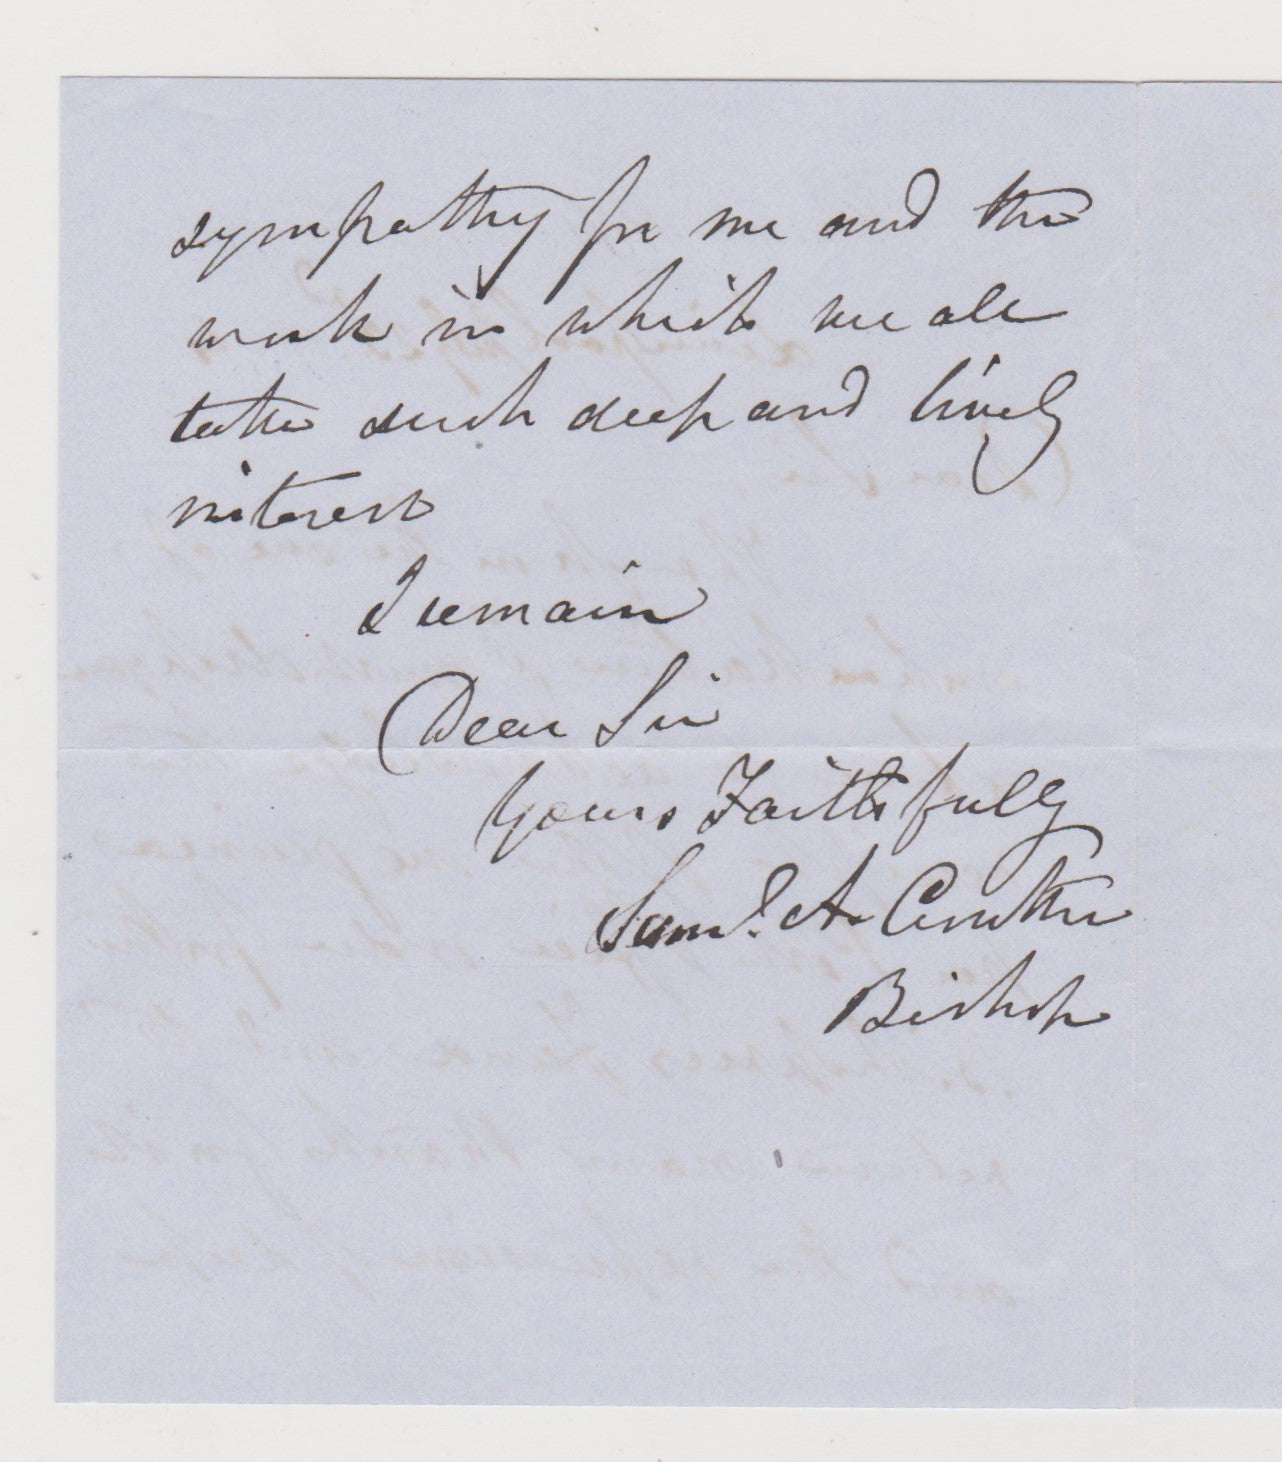 sympathy for me and the
work in which we all
take such deep and lively
interest
I remain
Dear Sir
Yours Faithfully
Saml. A. Crowther
Bishop